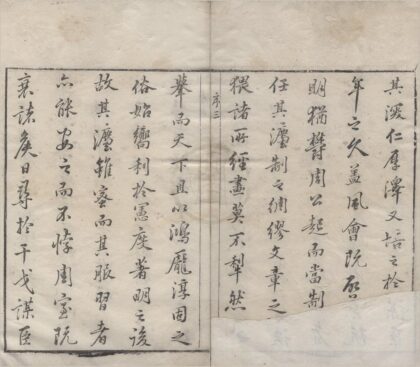 其深仁厚澤又培之於
年之久蓋風會既啓
明猶欝周公起而當制
任其灋制之綢繆文章之
猥諸所經畫莫不犁然
序三
舉而天下且以鴻龐淳固之
俗始嚮利於憲度著明之後
故其灋雖密而其服習者
亦能安之而不悖周室既
衰諸矦日尋於干戈謀臣